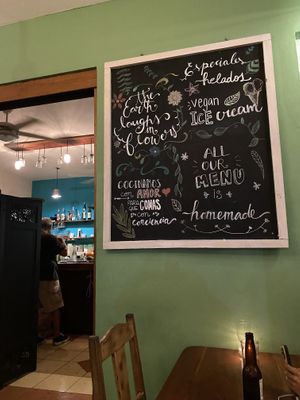 the
Earth
laughs
in
flowers
COCINAMOS
CON AMOR
PARA QUE COMAS
con
conciencia
Especiales
helados
vegan
ICE cream
ALL
OUR
MENU
is
homemade